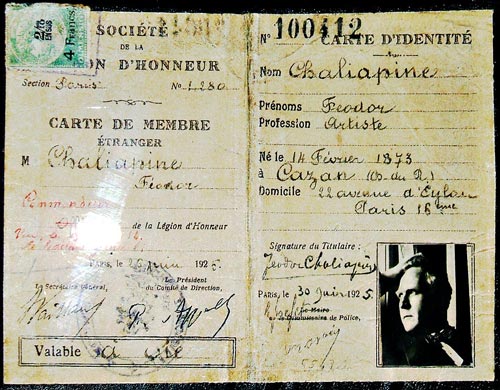 2/10
EN SUS
4 Francs
SOCIÉTÉ
DE LA
ION D'HONNEUR
Section Paris No 1.280
CARTE DE MEMBRE
ÉTRANGER
M Chaliapine
Feodor
de la Légion d'Honneur
PARIS, le 1925
Le Secrétaire Général, Le Président
du Comité de Direction,
Valable à vie
No 100412
CARTE D'IDENTITÉ
Nom Chaliapine
Prénoms Feodor
Profession Artiste
Né le 14 Février 1873
à Cazan
Domicile 22 avenue d'Eylau
Paris 16ème
Signature du Titulaire :
Feodor Chaliapin
PARIS, le 30 Juin 1925
Le Maire
de Police,